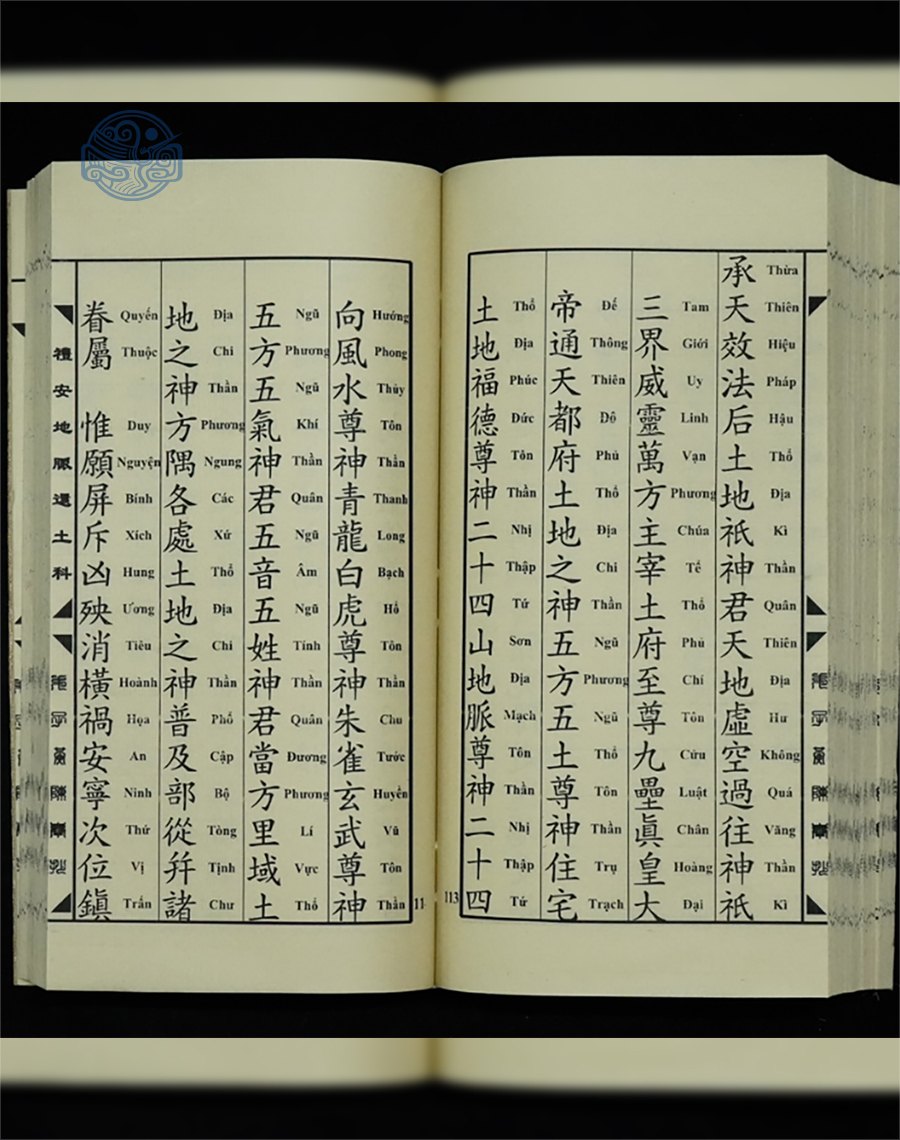 承天效法后土地祇神君天地虛空過往神祇
Thừa Thiên Hiệu Pháp Hậu Thổ Địa Kì Thần Quân Thiên Địa Hư Không Quá Vãng Thần Kì
三界威靈萬方主宰土府至尊九壘眞皇大
Tam Giới Uy Linh Vạn Phương Chúa Tể Thổ Phủ Chí Tôn Cửu Luật Chân Hoàng Đại
帝通天都府土地之神五方五土尊神住宅
Đế Thông Thiên Đô Phủ Thổ Địa Chi Thần Ngũ Phương Ngũ Thổ Tôn Thần Trụ Trạch
土地福德尊神二十四山地脈尊神二十四
Thổ Địa Phúc Đức Tôn Thần Nhị Thập Tứ Sơn Địa Mạch Tôn Thần Nhị Thập Tứ
113
向風水尊神青龍白虎尊神朱雀玄武尊神
Hướng Phong Thủy Tôn Thần Thanh Long Bạch Hổ Tôn Thần Chu Tước Huyền Vũ Tôn Thần
五方五氣神君五音五姓神君當方里域土
Ngũ Phương Ngũ Khí Thần Quân Ngũ Âm Ngũ Tính Thần Quân Dương Phương Lí Vực Thổ
地之神方隅各處土地之神普及部從幷諸
Địa Chi Thần Phương Ngung Các Xứ Thổ Địa Chi Thần Phổ Cập Bộ Tòng Tịnh Chư
眷屬 惟願屏斥凶殃消橫禍安寧次位鎭
Quyến Thuộc Duy Nguyện Bính Xích Hung Ương Tiêu Hoành Họa An Ninh Thứ Vị Trấn
禮安地脈還土科